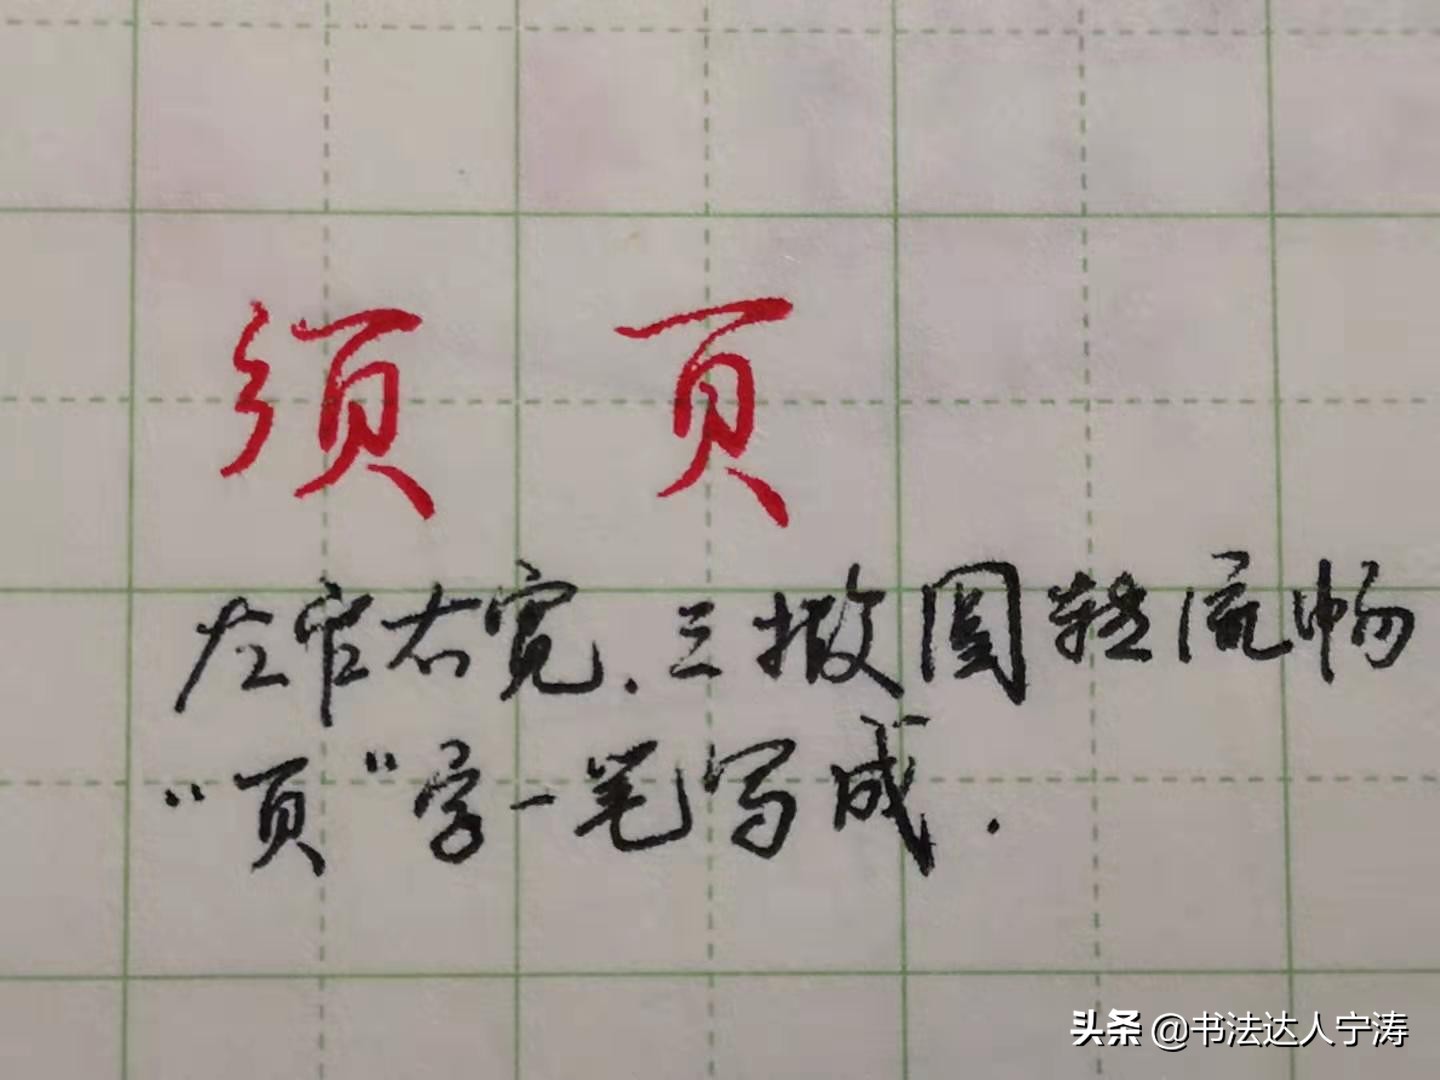 须 页
左窄右宽.三撇圆转流畅
“页”字一笔写成.
头条 @书法达人宁涛